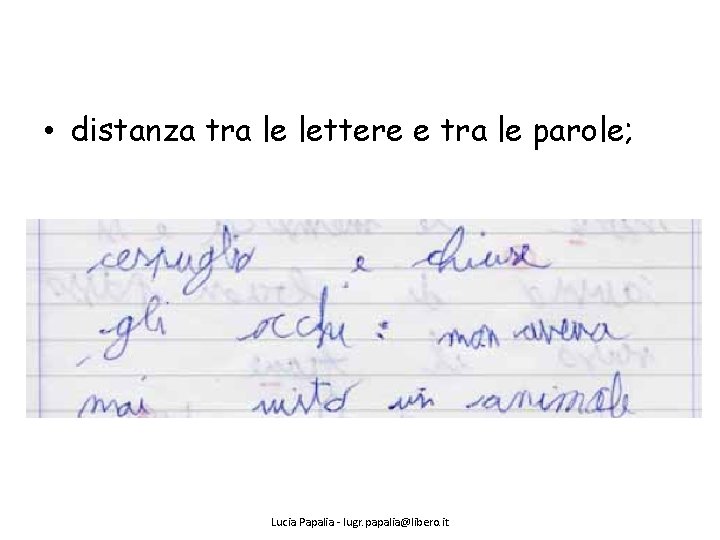 • distanza tra le lettere e tra le parole;
cespuglio e chiuse
gli occhi: non aveva
mai visto un animale
Lucia Papalia - lugr.papalia@libero.it